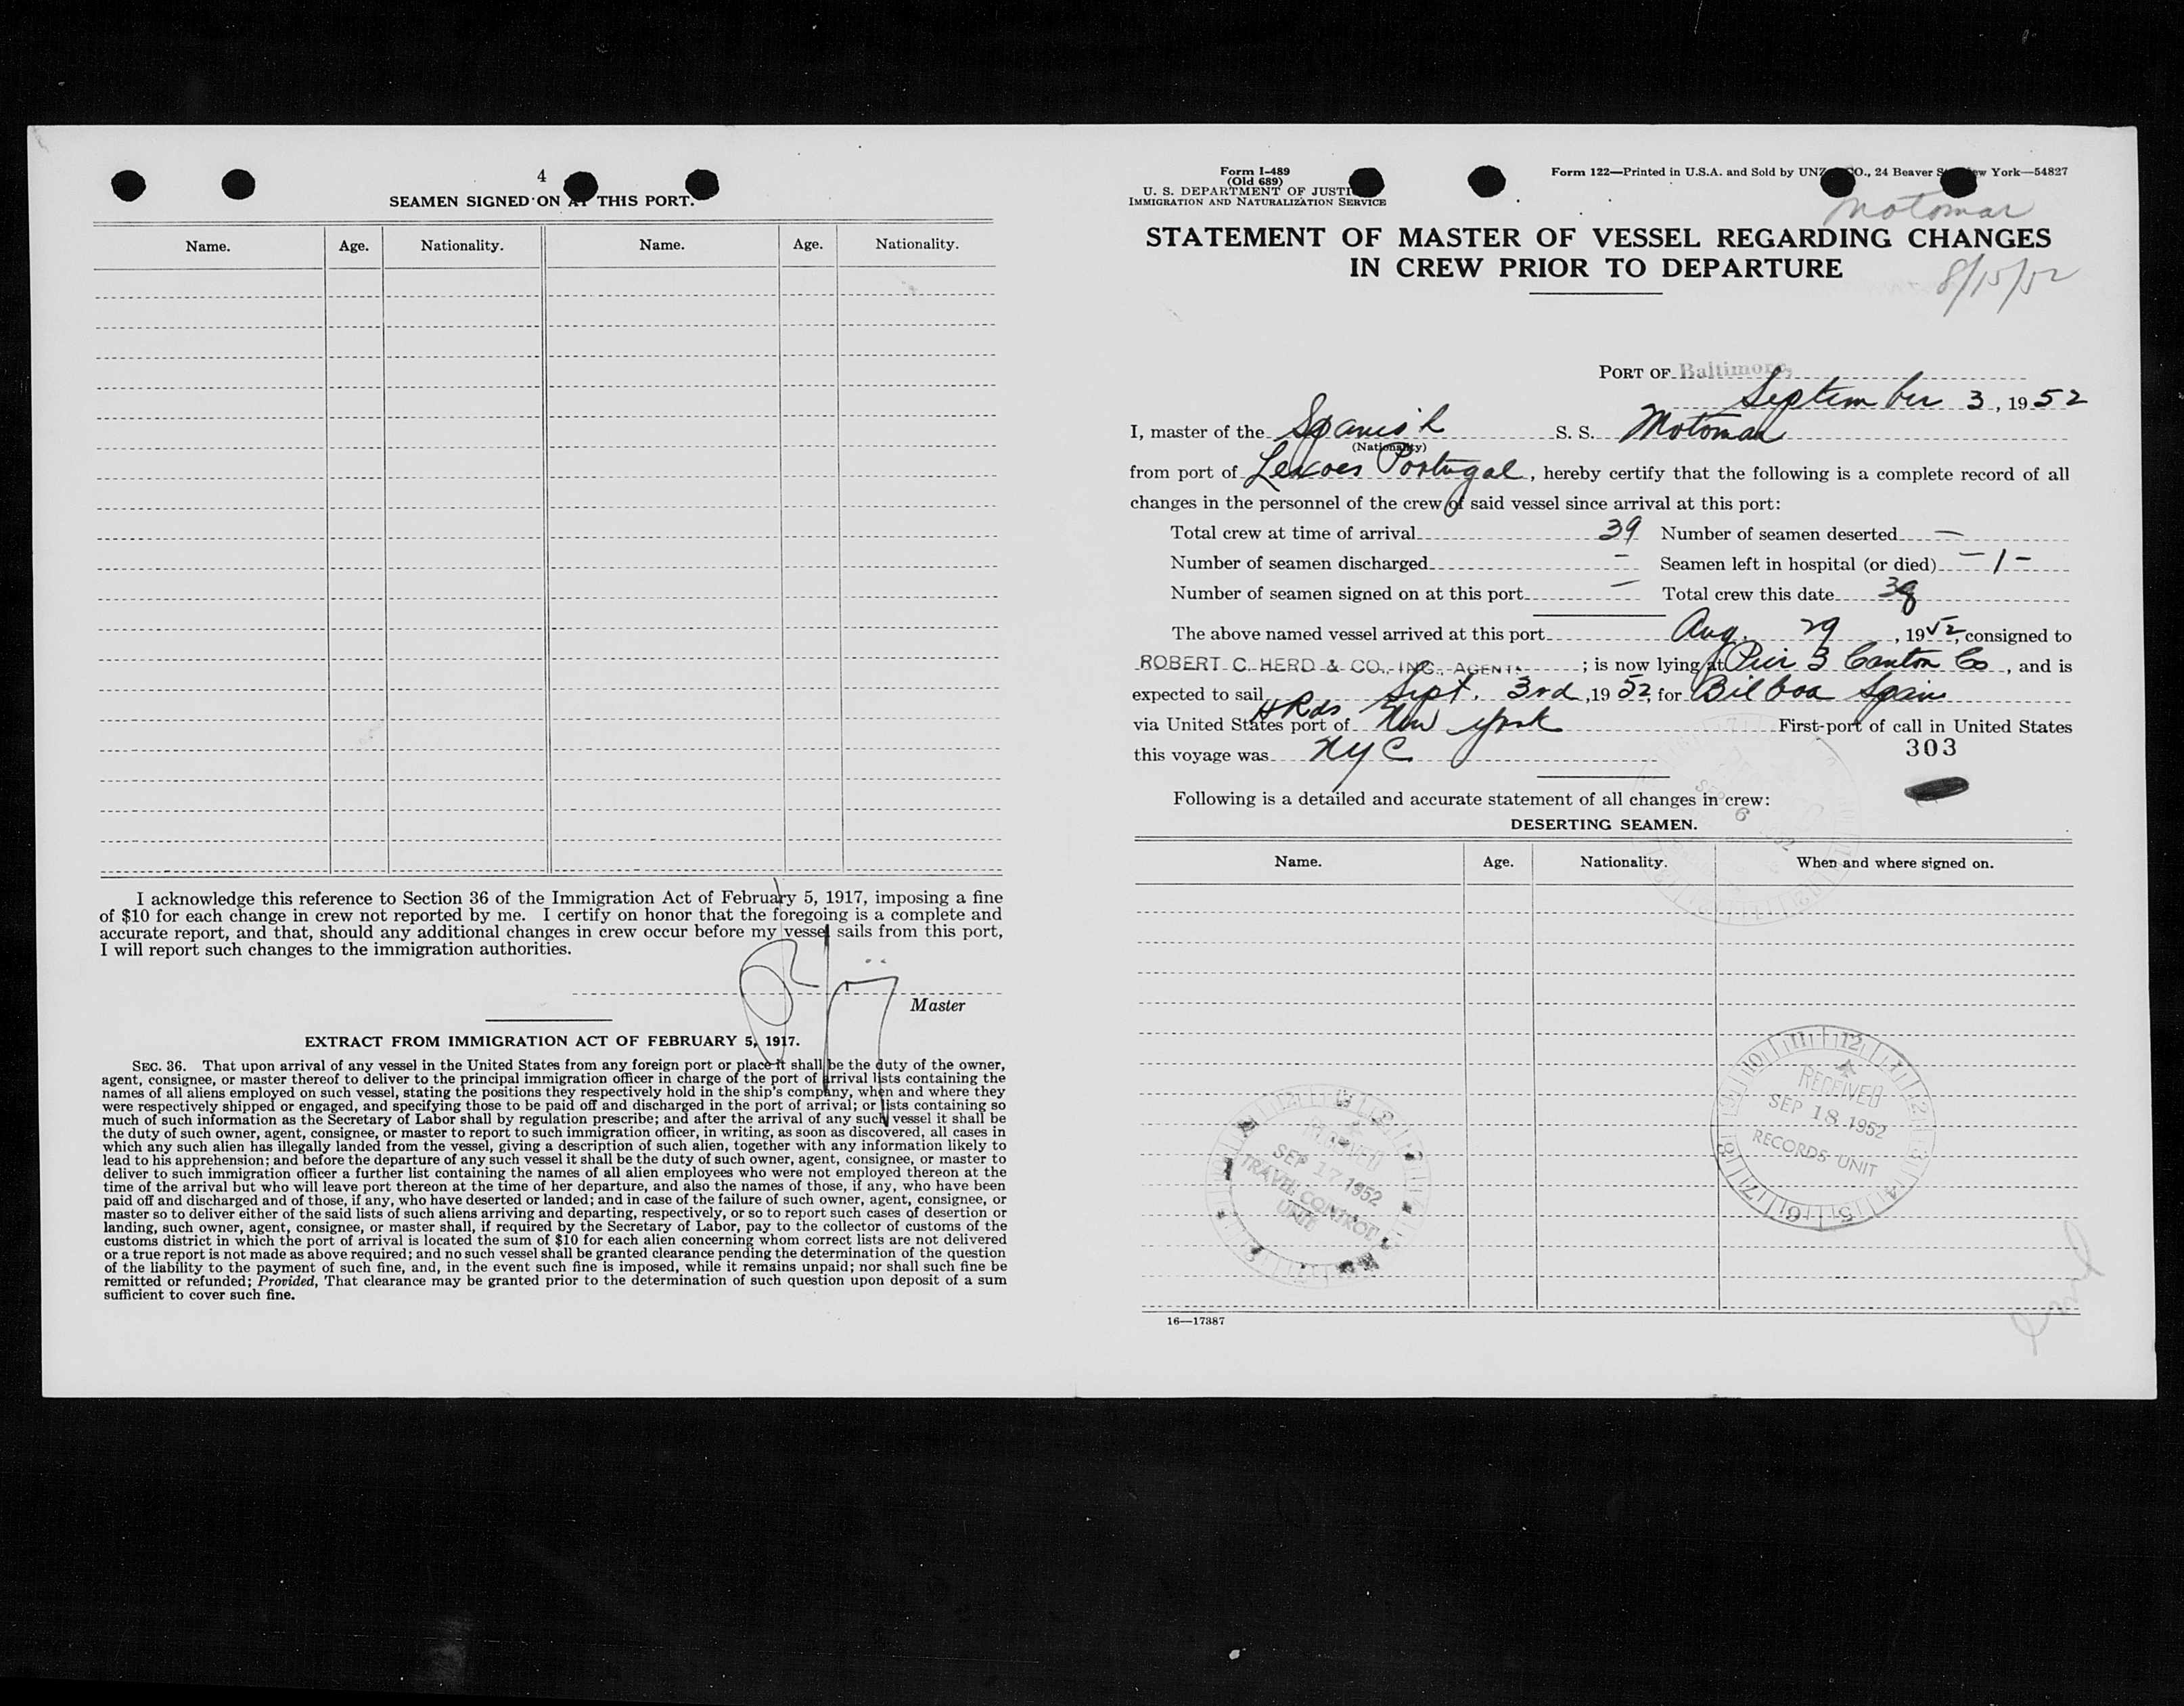 4
SEAMEN SIGNED ON AT THIS PORT.
Name. Age. Nationality. Name. Age. Nationality.
I acknowledge this reference to Section 36 of the Immigration Act of February 5, 1917, imposing a fine
of $10 for each change in crew not reported by me. I certify on honor that the foregoing is a complete and
accurate report, and that, should any additional changes in crew occur before my vessel sails from this port,
I will report such changes to the immigration authorities.
Master
EXTRACT FROM IMMIGRATION ACT OF FEBRUARY 5, 1917.
SEC. 36. That upon arrival of any vessel in the United States from any foreign port or place it shall be the duty of the owner,
agent, consignee, or master thereof to deliver to the principal immigration officer in charge of the port of arrival lists containing the
names of all aliens employed on such vessel, stating the positions they respectively hold in the ship's company, when and where they
were respectively shipped or engaged, and specifying those to be paid off and discharged in the port of arrival; or lists containing so
much of such information as the Secretary of Labor shall by regulation prescribe; and after the arrival of any such vessel it shall be
the duty of such owner, agent, consignee, or master to report to such immigration officer, in writing, as soon as discovered, all cases in
which any such alien has illegally landed from the vessel, giving a description of such alien, together with any information likely to
lead to his apprehension; and before the departure of any such vessel it shall be the duty of such owner, agent, consignee, or master to
deliver to such immigration officer a further list containing the names of all alien employees who were not employed thereon at the
time of the arrival but who will leave port thereon at the time of her departure, and also the names of those, if any, who have been
paid off and discharged and of those, if any, who have deserted or landed; and in case of the failure of such owner, agent, consignee, or
master so to deliver either of the said lists of such aliens arriving and departing, respectively, or so to report such cases of desertion or
landing, such owner, agent, consignee, or master shall, if required by the Secretary of Labor, pay to the collector of customs of the
customs district in which the port of arrival is located the sum of $10 for each alien concerning whom correct lists are not delivered
or a true report is not made as above required; and no such vessel shall be granted clearance pending the determination of the question
of the liability to the payment of such fine, and, in the event such fine is imposed, while it remains unpaid; nor shall such fine be
remitted or refunded; Provided, That clearance may be granted prior to the determination of such question upon deposit of a sum
sufficient to cover such fine.
Form I-489
(Old 689)
U. S. DEPARTMENT OF JUSTI
IMMIGRATION AND NATURALIZATION SERVICE
Form 122—Printed in U.S.A. and Sold by UNZ CO., 24 Beaver S ew York—54827
Motomar
STATEMENT OF MASTER OF VESSEL REGARDING CHANGES
IN CREW PRIOR TO DEPARTURE
8/15/52
PORT OF Baltimore,
September 3, 1952
I, master of the Spanish S. S. Motomar
(Nationality)
from port of Leixoes Portugal, hereby certify that the following is a complete record of all
changes in the personnel of the crew of said vessel since arrival at this port:
Total crew at time of arrival 39 Number of seamen deserted —
Number of seamen discharged — Seamen left in hospital (or died) — 1 —
Number of seamen signed on at this port — Total crew this date 38
The above named vessel arrived at this port Aug. 29, 1952, consigned to
ROBERT C. HERD & CO., INC., AGENTS; is now lying at Pier 3 Canton Co, and is
expected to sail Sept. 3rd, 1952, for Bilboa Spain
H Rds
via United States port of New York First port of call in United States
this voyage was NYC
303
Following is a detailed and accurate statement of all changes in crew:
DESERTING SEAMEN.
Name. Age. Nationality. When and where signed on.
SEP 6
RECEIVED
SEP 17 1952
TRAVEL CONTROL
UNIT
RECEIVED
SEP 18 1952
RECORDS UNIT
16—17387